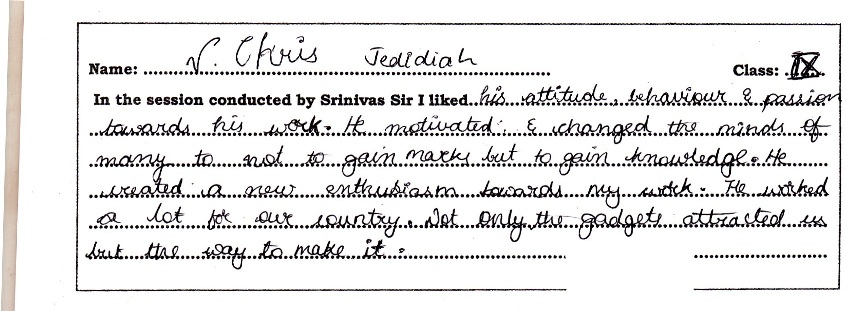 Name: V. Chris Jedidiah Class: IX
In the session conducted by Srinivas Sir I liked his attitude, behaviour & passion
towards his work. He motivated & changed the minds of
many to not to gain marks but to gain knowledge. He
created a new enthusiasm towards my work. He worked
a lot for our country. Not only the gadgets attracted us
but the way to make it.